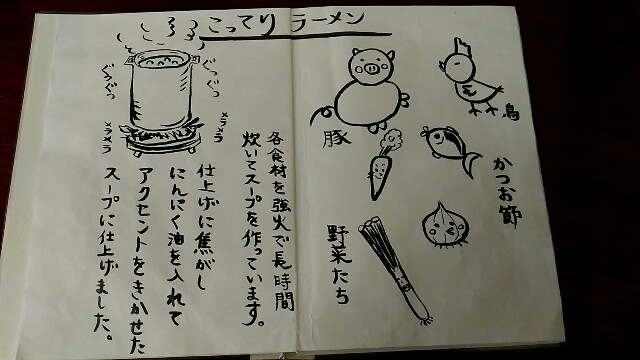 こってりラーメン
鳥
豚
かつお節
野菜たち
各食材を強火で長時間
炊いてスープを作っています。
仕上げに焦がし
にんにく油を入れて
アクセントをきかせた
スープに仕上げました。
ぐつぐつ
ぐつぐつ
メラメラ
メラメラ